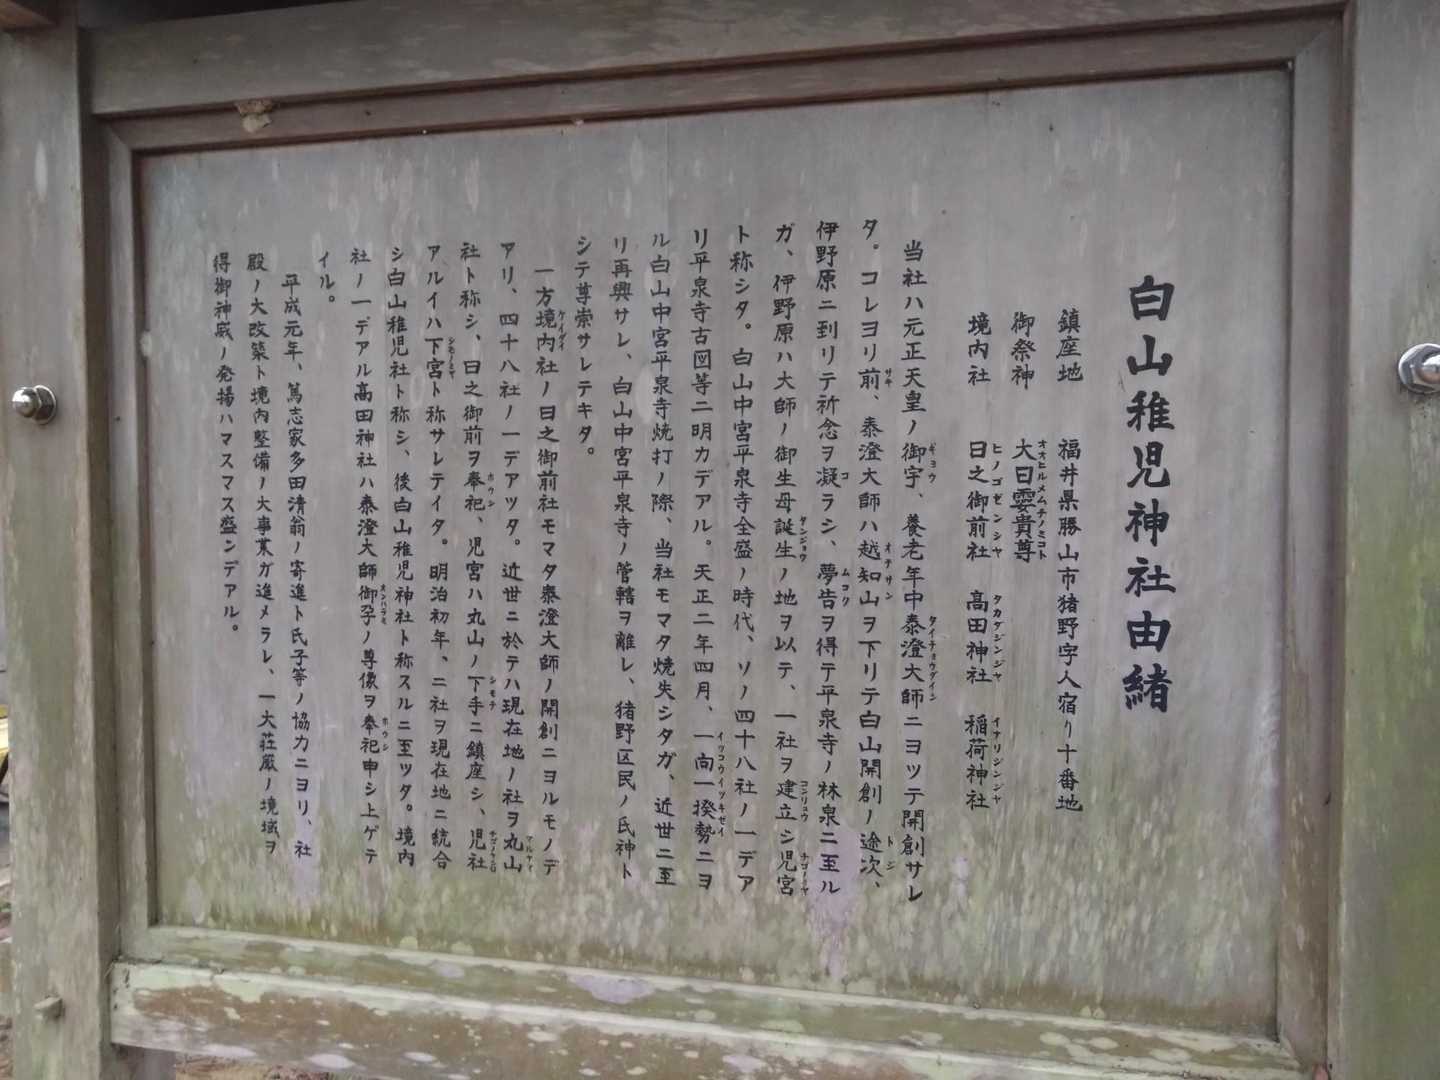 白山稚児神社由緒
鎮座地　福井県勝山市猪野字人宿り十番地
御祭神　大日孁貴尊
オオヒルメムチノミコト
境内社　日之御前社　高田神社　稲荷神社
ヒノゴゼンシヤ　タカダジンジヤ　イナリジンジヤ
当社ハ元正天皇ノ御宇、養老年中泰澄大師ニヨツテ開創サレ
ギヨウ　タイチョウダイシ
タ。コレヨリ前、泰澄大師ハ越知山ヲ下リテ白山開創ノ途次、
サキ　オチサン　トジ
伊野原ニ到リテ祈念ヲ凝ラシ、夢告ヲ得テ平泉寺ノ林泉ニ至ル
コ　ムコク
ガ、伊野原ハ大師ノ御生母誕生ノ地ヲ以テ、一社ヲ建立シ児宮
タンジョウ　コンリュウ　チゴノミヤ
ト称シタ。白山中宮平泉寺全盛ノ時代、ソノ四十八社ノ一デア
リ平泉寺古図等ニ明カデアル。天正二年四月、一向一揆勢ニヨ
イツコウイツキゼイ
ル白山中宮平泉寺焼打ノ際、当社モマタ焼失シタガ、近世ニ至
リ再興サレ、白山中宮平泉寺ノ管轄ヲ離レ、猪野区民ノ氏神ト
シテ尊崇サレテキタ。
一方境内社ノ日之御前社モマタ泰澄大師ノ開創ニヨルモノデ
ケイダイ
アリ、四十八社ノ一デアツタ。近世ニ於テハ現在地ノ社ヲ丸山
マルヤマ
社ト称シ、日之御前ヲ奉祀、児宮ハ丸山ノ下手ニ鎮座シ、児社
ホウシ　シモテ
アルイハ下宮ト称サレテイタ。明治初年、二社ヲ現在地ニ統合
シモノミヤ
シ白山稚児社ト称シ、後白山稚児神社ト称スルニ至ツタ。境内
社ノ一デアル高田神社ハ泰澄大師御孕ノ尊像ヲ奉祀申シ上ゲテ
オンハラミ　ホウシ
イル。
平成元年、篤志家多田清翁ノ寄進ト氏子等ノ協力ニヨリ、社
殿ノ大改築ト境内整備ノ大事業ガ進メラレ、一大荘厳ノ境域ヲ
得御神威ノ発揚ハマスマス盛ンデアル。